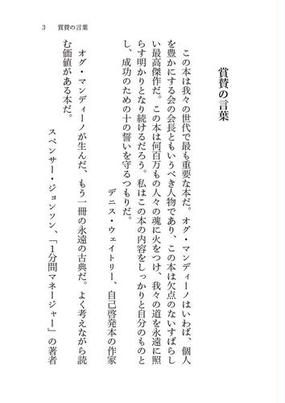 3　賞賛の言葉
賞賛の言葉
この本は我々の世代で最も重要な本だ。オグ・マンディーノはいわば、個人
を豊かにする会の会長ともいうべき人物であり、この本は欠点のないすばらし
い最高傑作だ。この本は何百万もの人々の魂に火をつけ、我々の道を永遠に照
らす明かりとなり続けるだろう。私はこの本の内容をしっかりと自分のものと
し、成功のための十の誓いを守るつもりだ。
デニス・ウェイトリー、自己啓発本の作家
オグ・マンディーノが生んだ、もう一冊の永遠の古典だ。よく考えながら読
む価値がある本だ。
スペンサー・ジョンソン、「1分間マネージャー」の著者